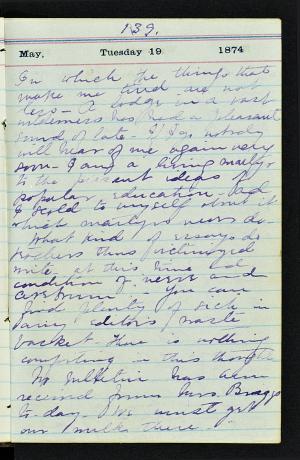 139.
May, Tuesday 19 1874
in which the things that
make me tired are not
A lodge in a vast
wilderness has had a pleasant
sound of late. nobody
will hear of me again very
soon. I am a living martyr
to the present ideas of
popular education. And
I scold to myself about it
which martyrs never do
What kind of essays do
teachers thus victimized
write, at this time and
condition of nerve and
You can
find plenty of such in
any editor's waste
basket. There is nothing
comforting in this thought
No bulletin has been
received from Mrs. Bragg
to-day. We must get
our milk there.